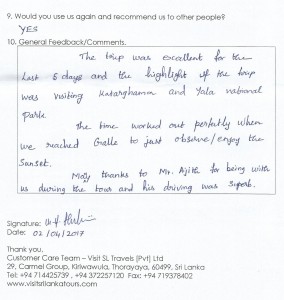 9. Would you use us again and recommend us to other people?
YES
10. General Feedback/Comments.
The trip was excellent for the
last 5 days and the highlight of the trip
was visiting Kataraghama and Yala national
Park.
The time worked out perfectly when
we reached Galle to just observe/enjoy the
Sunset.
Many thanks to Mr. Ajith for being with
us during the tour and his driving was superb.
Signature:
Date: 02/04/2017
Thank you,
Customer Care Team – Visit SL Travels (Pvt) Ltd
29, Carmel Group, Kiriwawula, Thorayaya, 60499, Sri Lanka
Tel: +94 714425739, +94 372257120 Fax: +94 719378402
www.visitsrilankatours.com